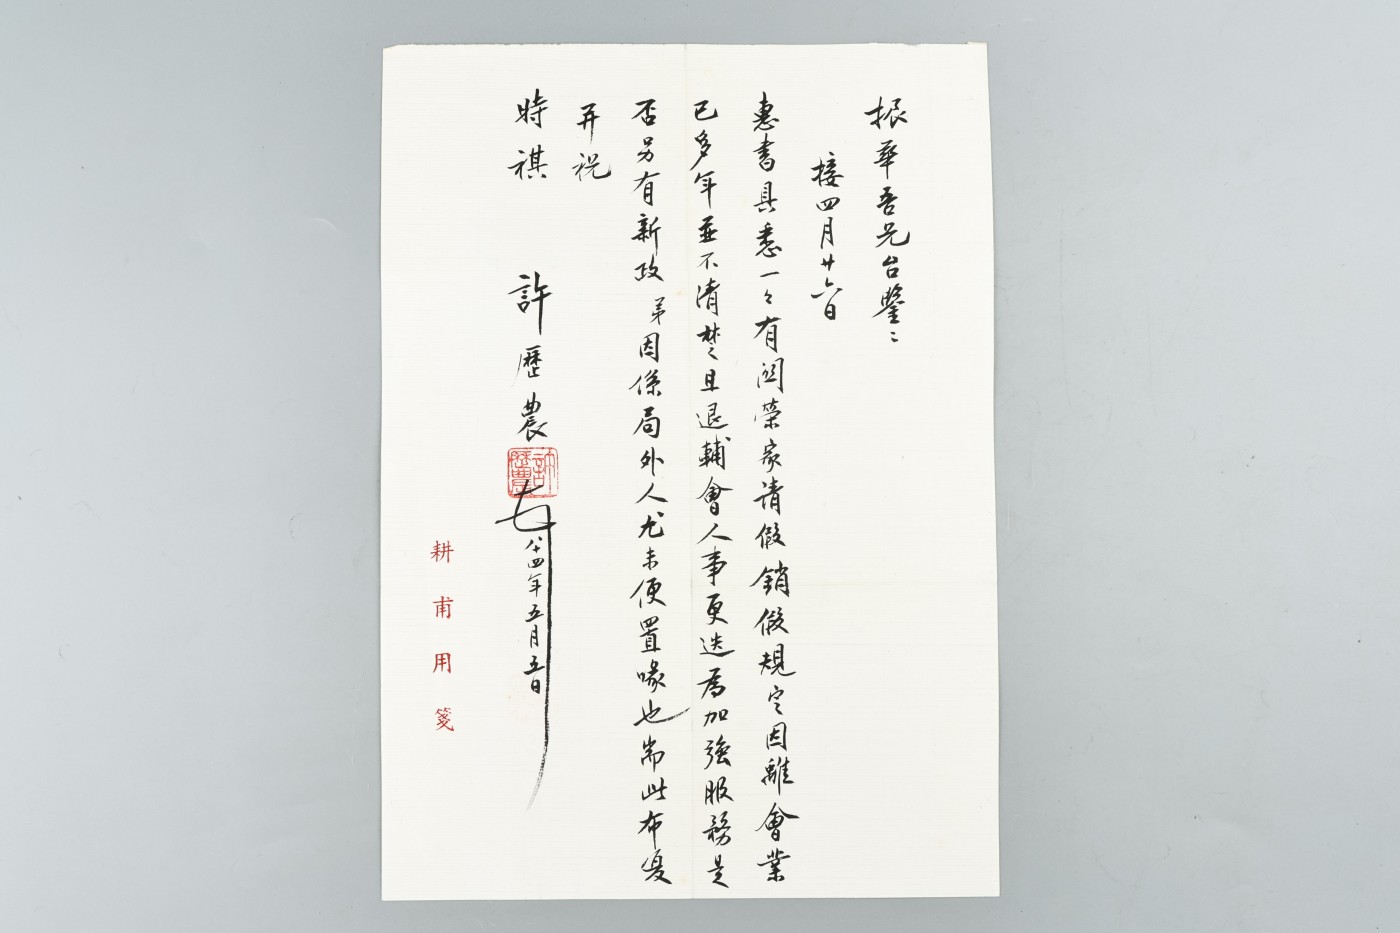 振華吾兄台鑒：
接四月廿六日
惠書具悉一々有関榮家請假銷假規定因離會業
已多年並不清楚且退輔會人事更迭為加強服務是
否另有新政弟因係局外人尤未便置喙也耑此布复
并祝
時祺
許歷農
八十四年五月五日
耕甫用箋